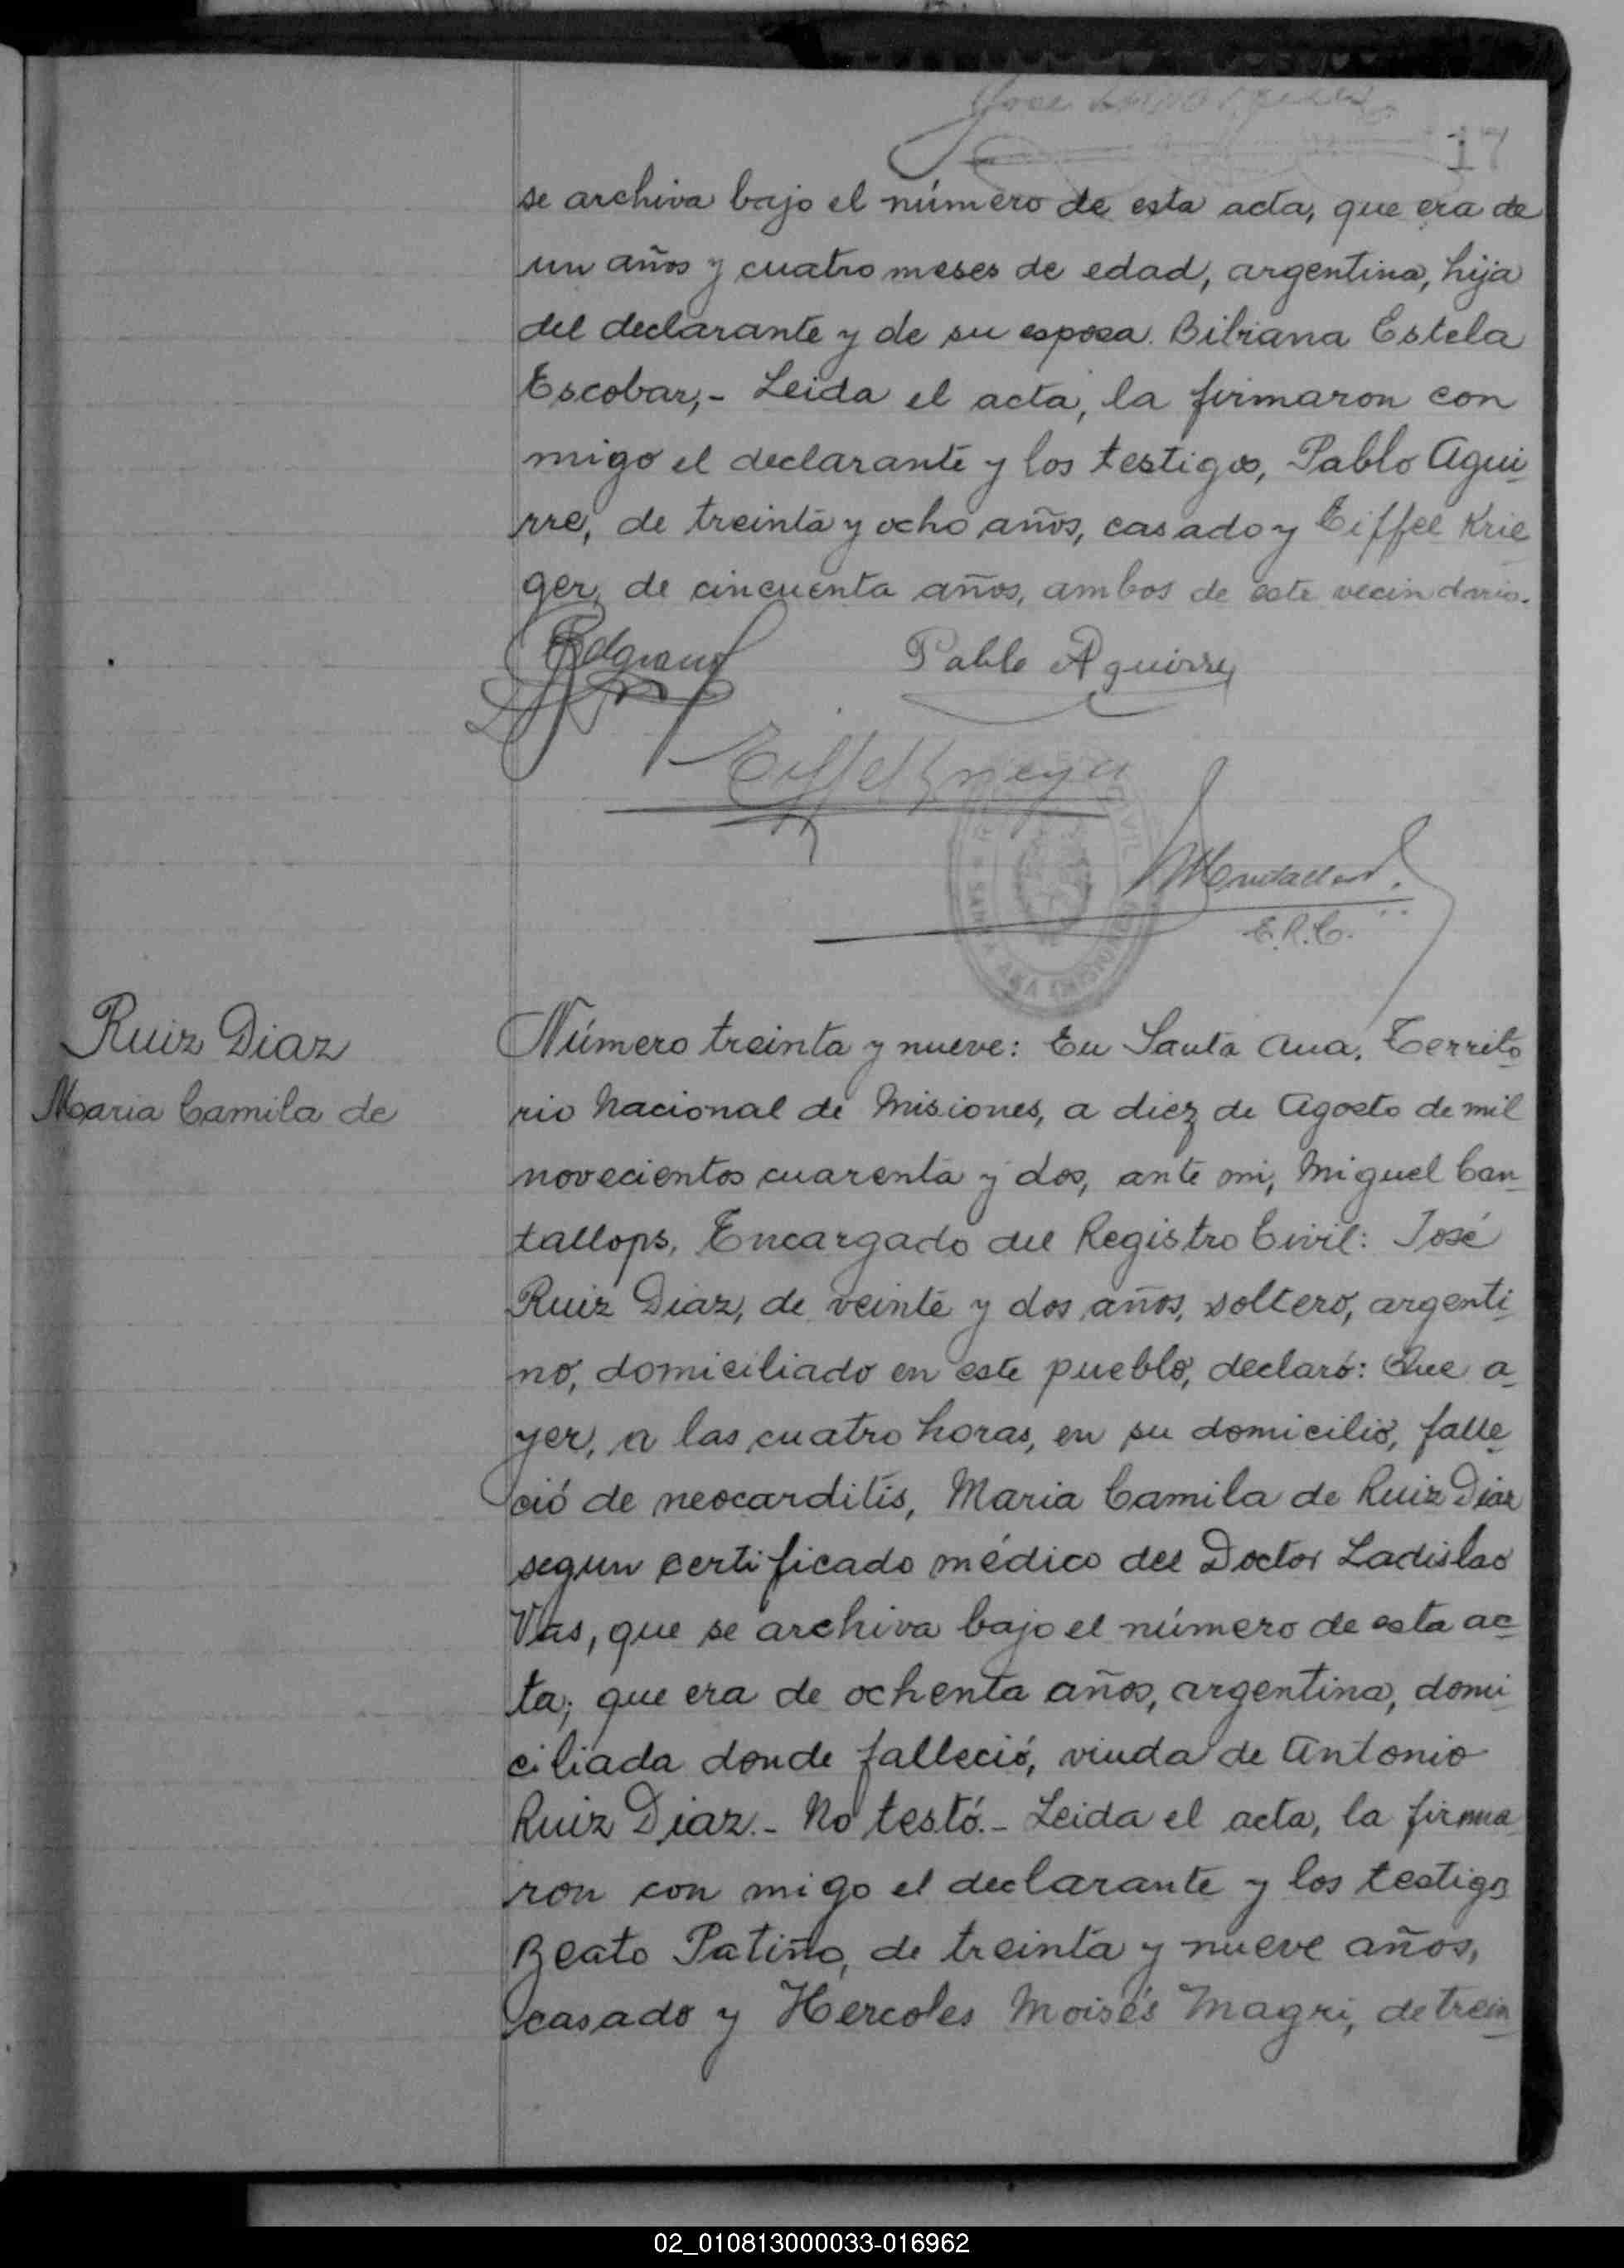 17
se archiva bajo el número de esta acta, que era de
un años y cuatro meses de edad, argentina, hija
del declarante y de su esposa Bibiana Estela
Escobar,- Leida el acta, la firmaron con
migo el declarante y los testigos, Pablo Agui
rre, de treinta y ocho años, casado y Eiffel Krie
ger, de cincuenta años, ambos de este vecindario.
Pablo Aguirre
E.R.C.
Ruiz Diaz
Maria Camila de
Número treinta y nueve: En Santa Ana, Territo
rio Nacional de Misiones, a diez de Agosto de mil
novecientos cuarenta y dos, ante mi, Miguel Can
tallops, Encargado del Registro Civil: José
Ruiz Diaz, de veinte y dos años, soltero, argenti
no, domiciliado en este pueblo, declaró: Que a
yer, a las cuatro horas, en su domicilio, falle
ció de neocarditis, Maria Camila de Ruiz Diaz
segun certificado médico del Doctor Ladislao
Vas, que se archiva bajo el número de esta ac
ta; que era de ochenta años, argentina, domi
ciliada donde falleció, viuda de Antonio
Ruiz Diaz.- No testó.- Leida el acta, la firma
ron con migo el declarante y los testigos
Beato Patiño, de treinta y nueve años,
casado y Hercoles Moisés Magri, de trein
02_010813000033-016962